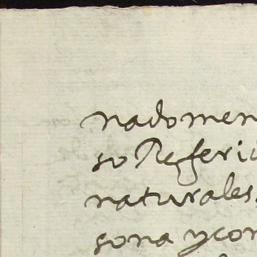 nadomen
so Referi
naturales.
sona ycon